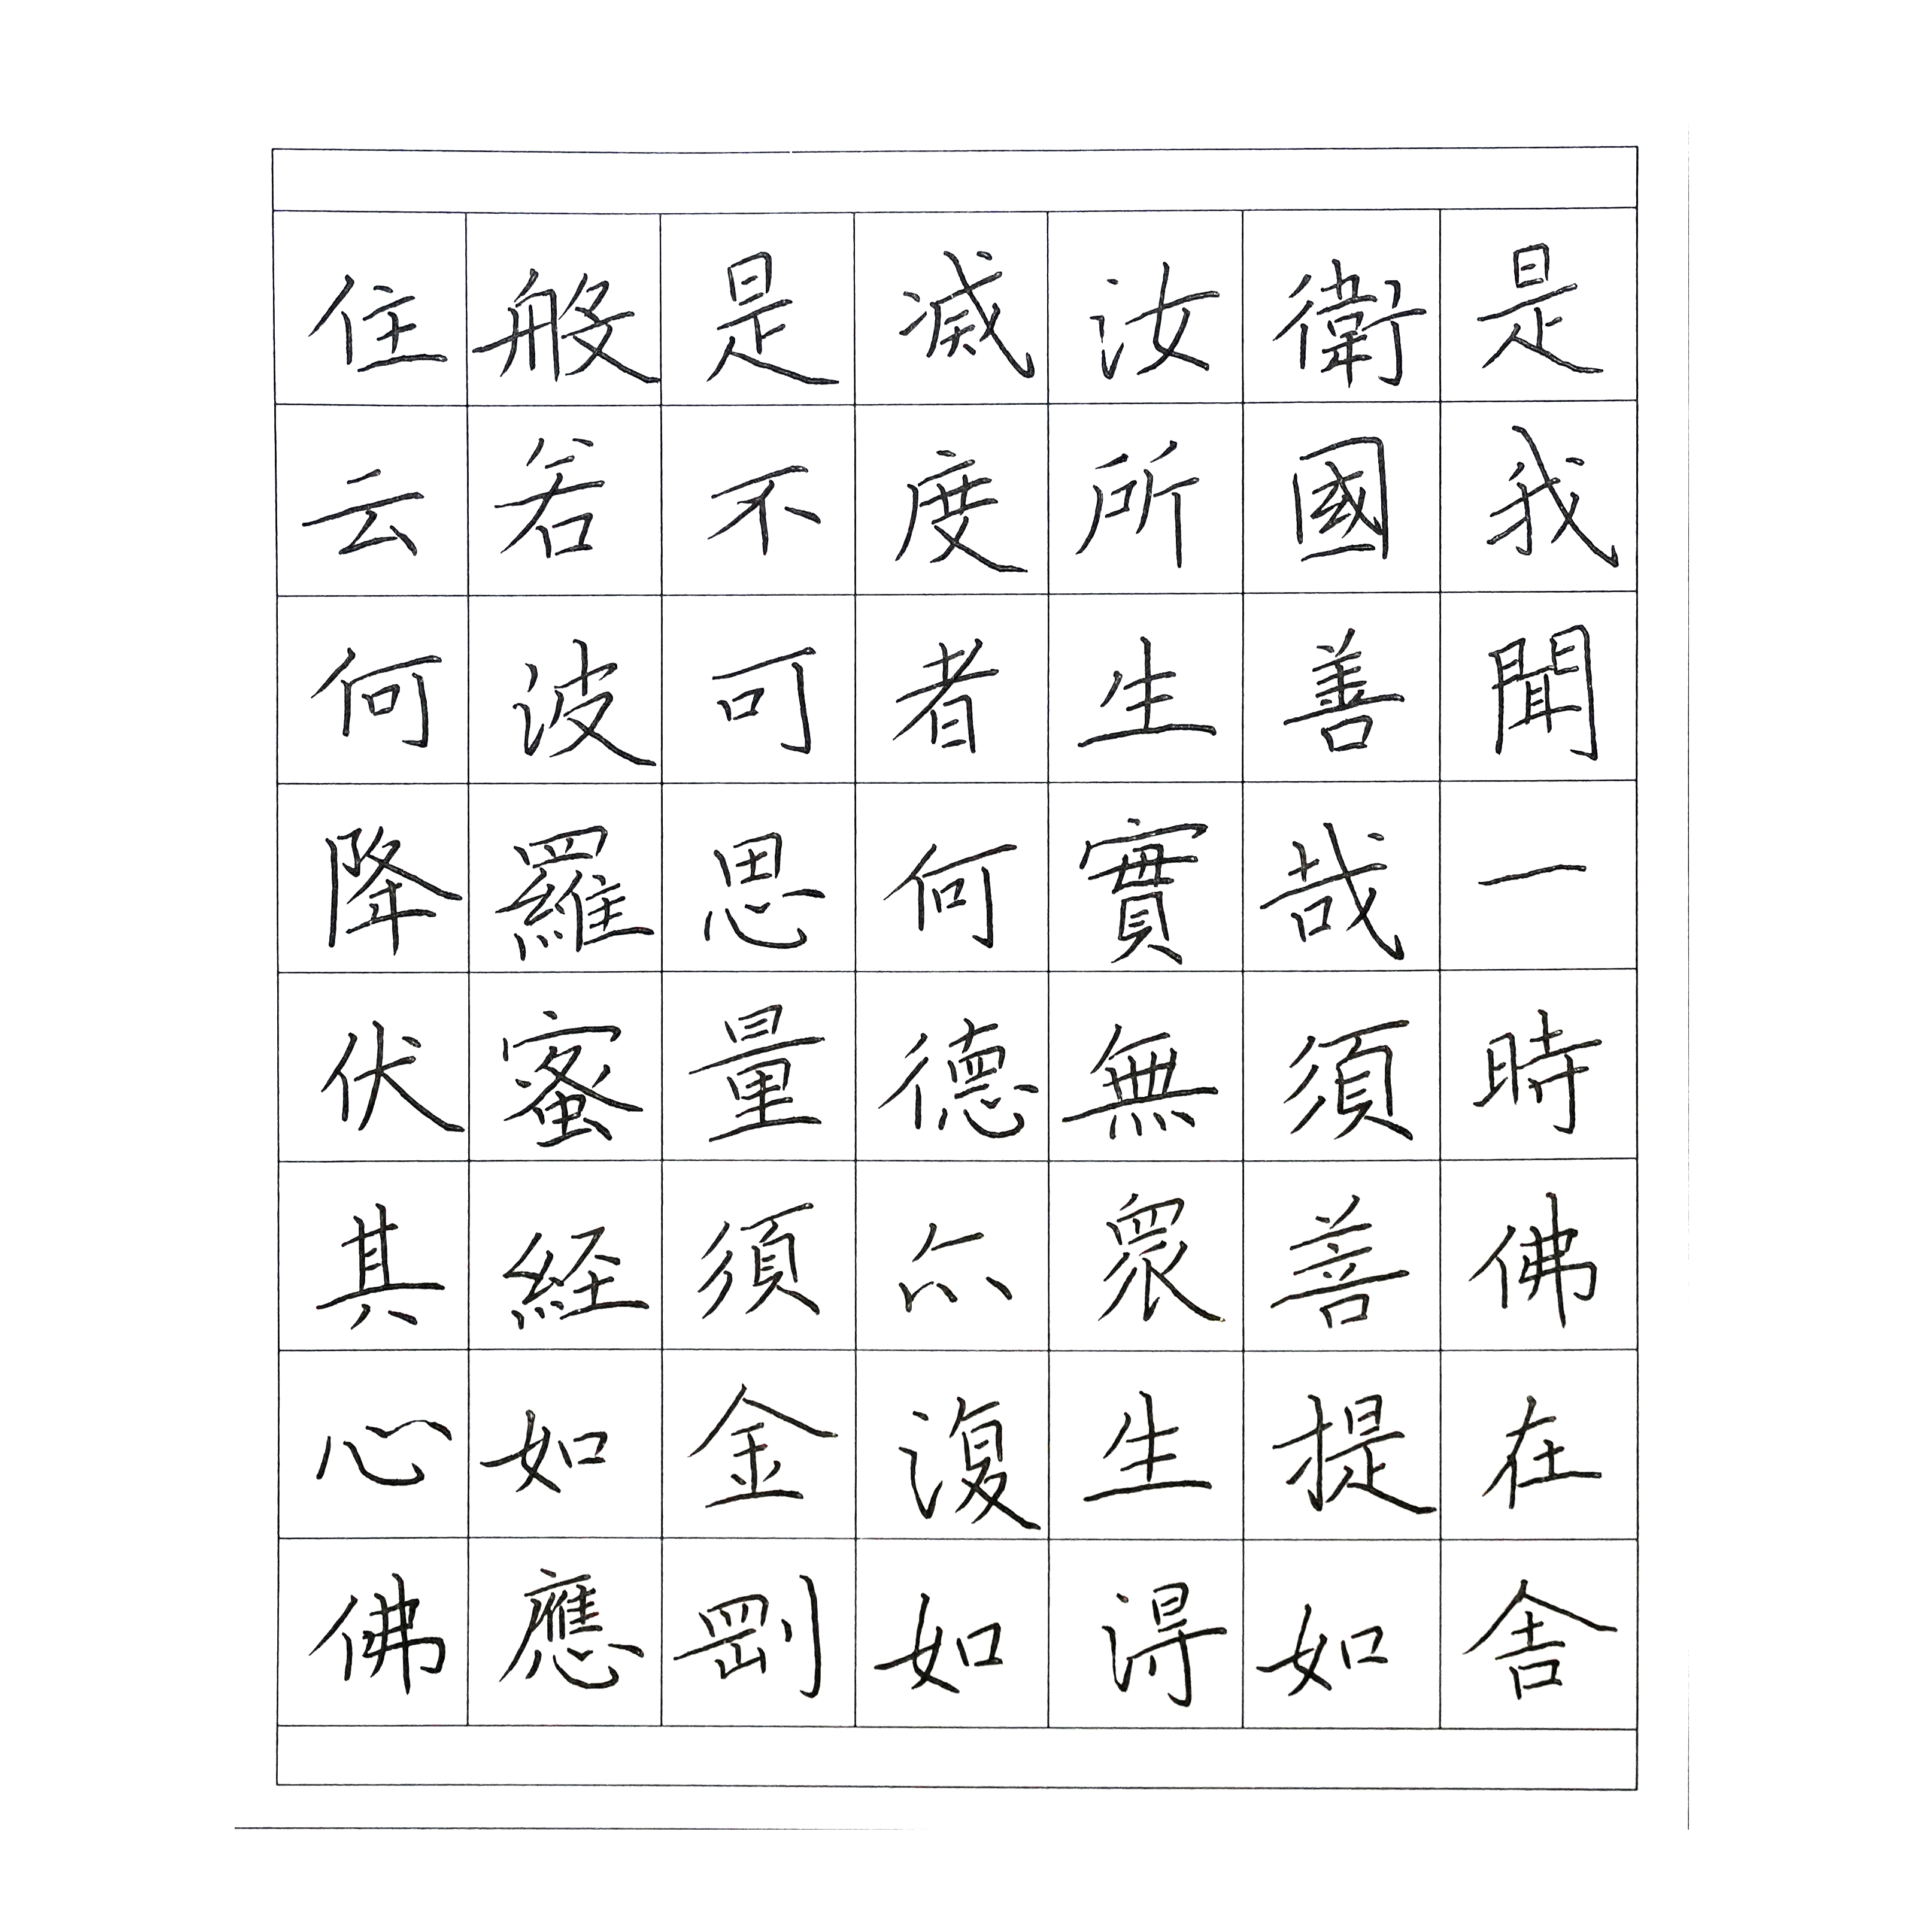 是我聞一時佛在舍
衛國善哉須菩提如
汝所生實無眾生得
滅度者何德亦復如
是不可思量須金剛
般若波羅蜜經如應
住云何降伏其心佛